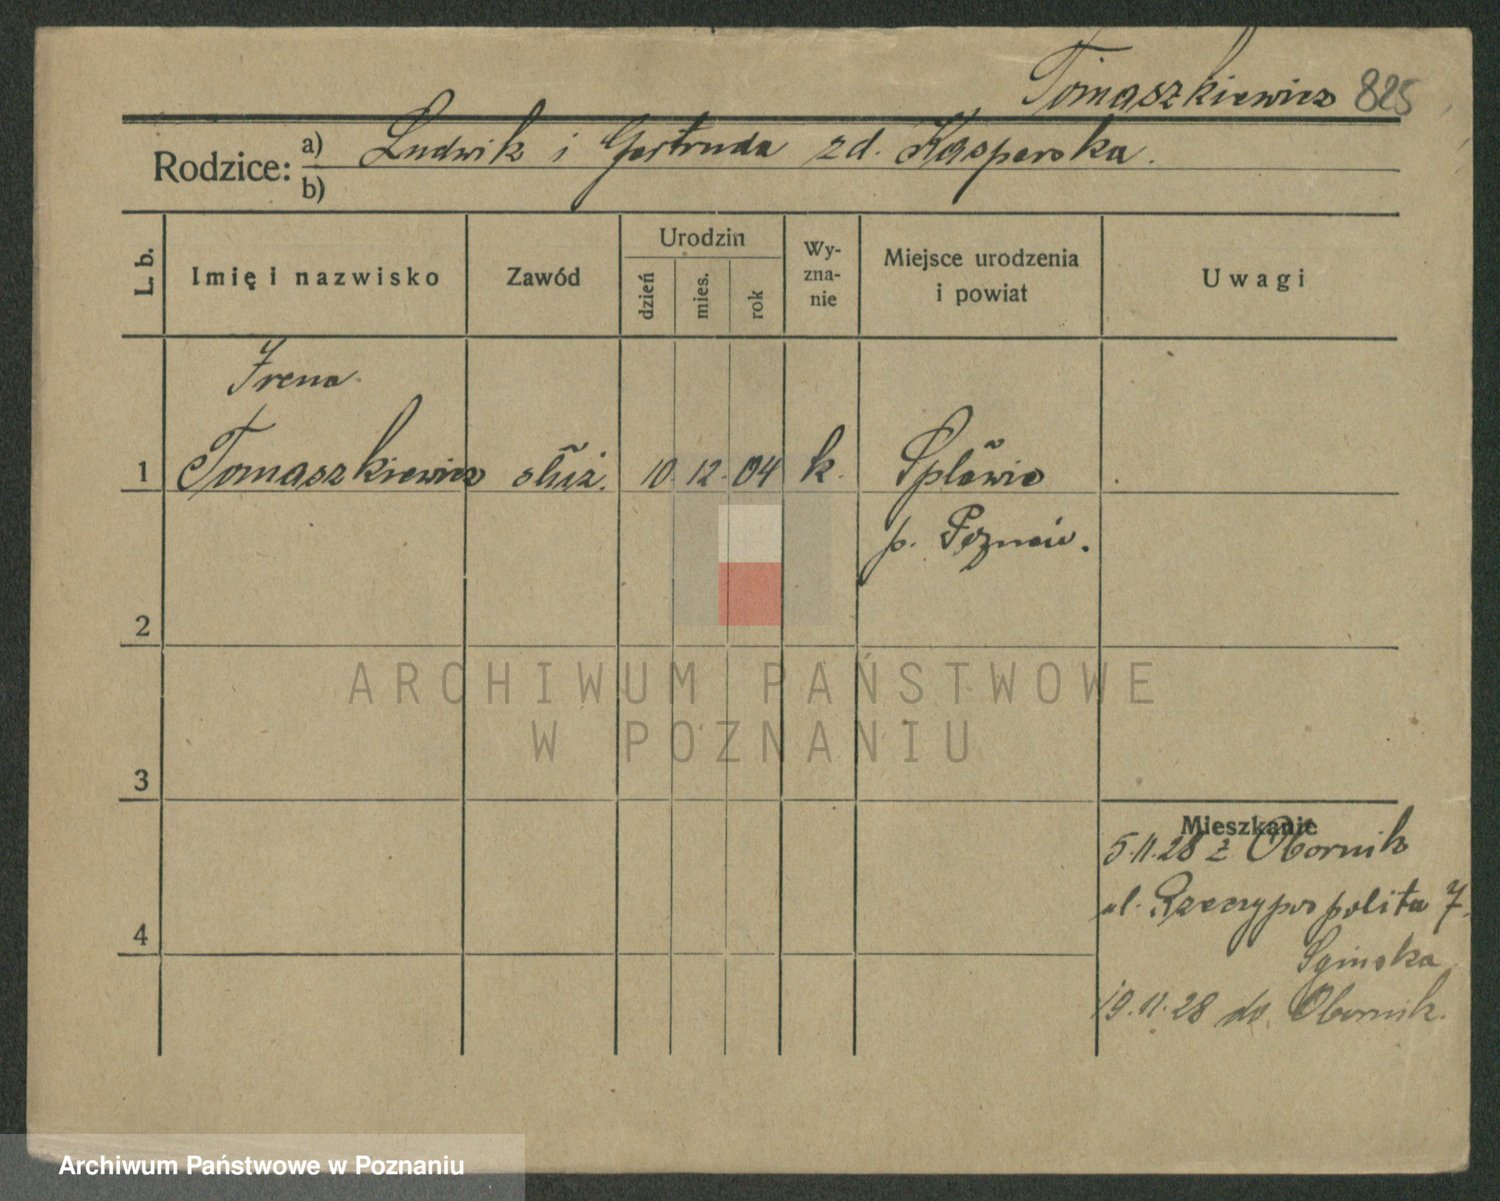 Tomaszkiewicz 825
Rodzice: a) Ludwik i Gertruda zd. Kasperska.
b)
L. b.
Imię i nazwisko
Zawód
Urodzin
dzień
mies.
rok
Wy-
zna-
nie
Miejsce urodzenia
i powiat
Uwagi
Irena
1 Tomaszkiewicz służ. 10. 12. 04 k. Spławie
p. Poznań.
2
3
4
Mieszkanie
5.11.28 z Obornik
ul. Rzeczypospolita 7.
19.11.28 do Obornik.
ARCHIWUM PAŃSTWOWE
W POZNANIU
Archiwum Państwowe w Poznaniu